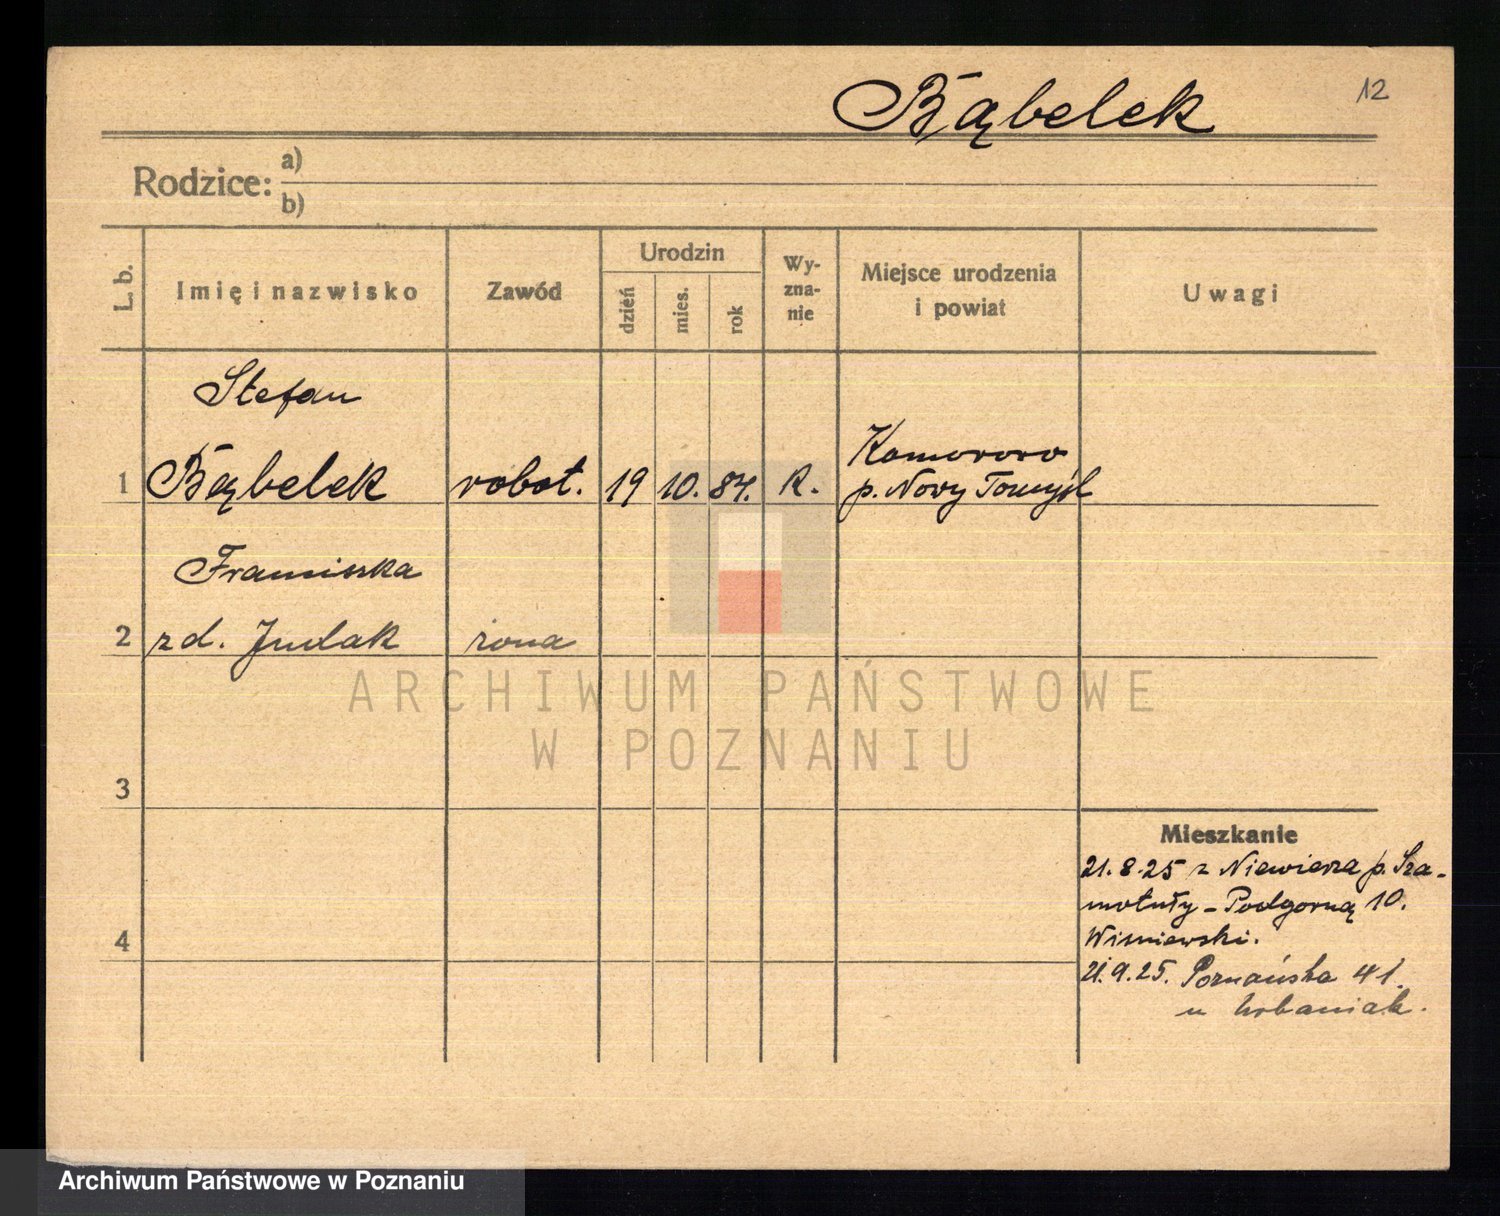 Bąbelek
12
Rodzice: a)
b)
L. b.
Imię i nazwisko
Zawód
Urodzin
dzień
mies.
rok
Wy-
zna-
nie
Miejsce urodzenia
i powiat
Uwagi
Stefan
1 Bąbelek robot. 19 10. 84. R. Komorowo
p. Nowy Tomyśl
Franciszka
2 zd. Judak żona
3
4
Mieszkanie
21. 8. 25 z Niewierza p. Sza-
motuły - Podgorną 10.
Wiśniewski.
21. 9. 25. Poznańska 41.
u Urbaniak.
ARCHIWUM PAŃSTWOWE
W POZNANIU
Archiwum Państwowe w Poznaniu